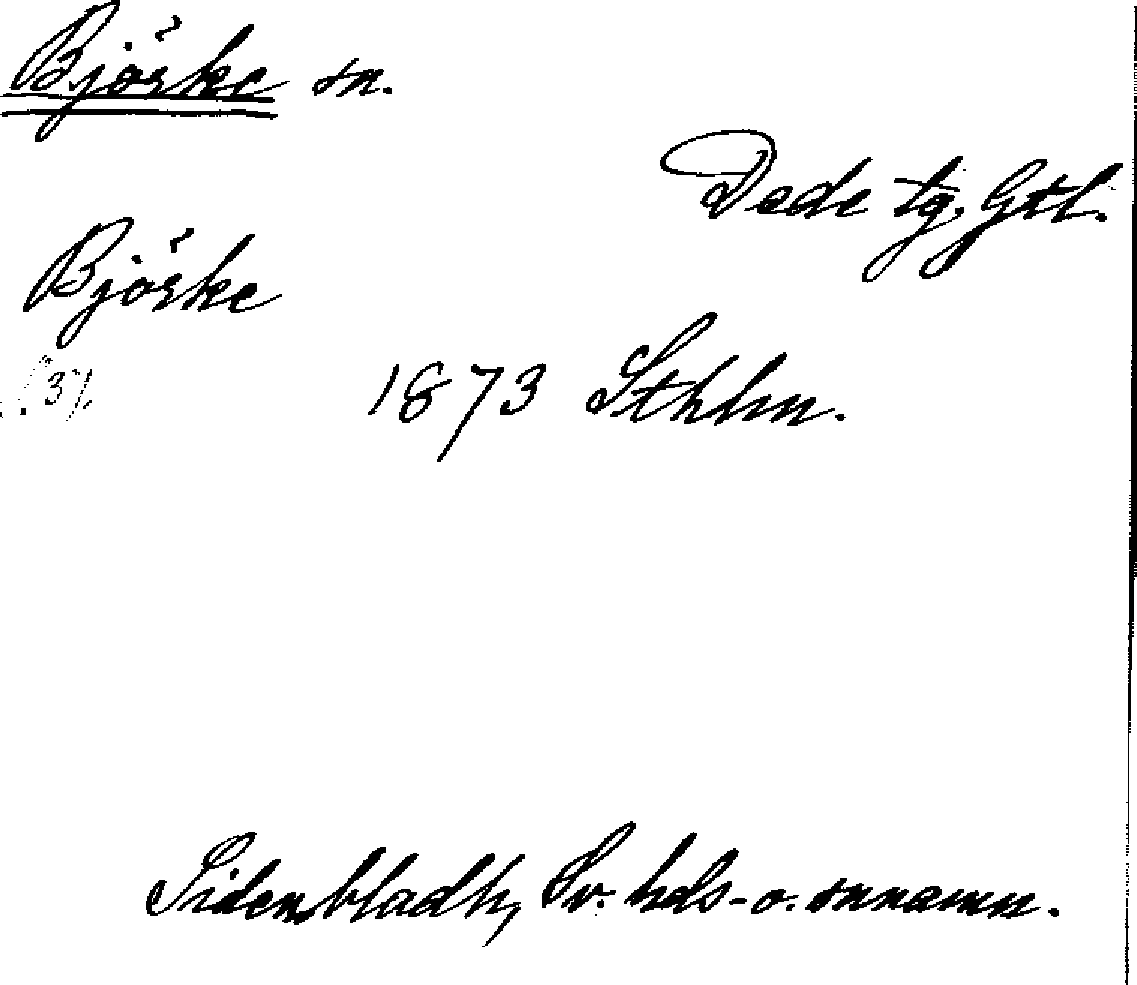 Björke sn.
Dede tg, Gtl.
Björke
1873 Sthlm.
Sidenbladh, Sv. hds- o. snnamn.